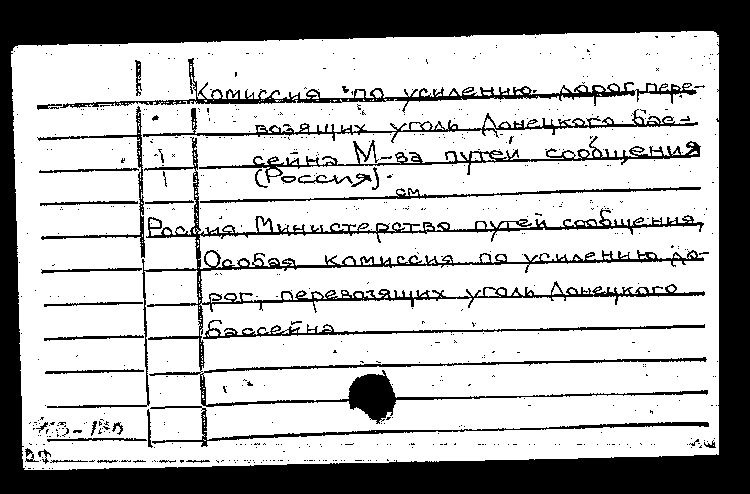 Комиссия по усилению дорог, пере-
возящих уголь Донецкого бас-
сейна М-ва путей сообщения
(Россия).
см.
Россия. Министерство путей сообщения.
Особая комиссия по усилению до-
рог, перевозящих уголь Донецкого
бассейна